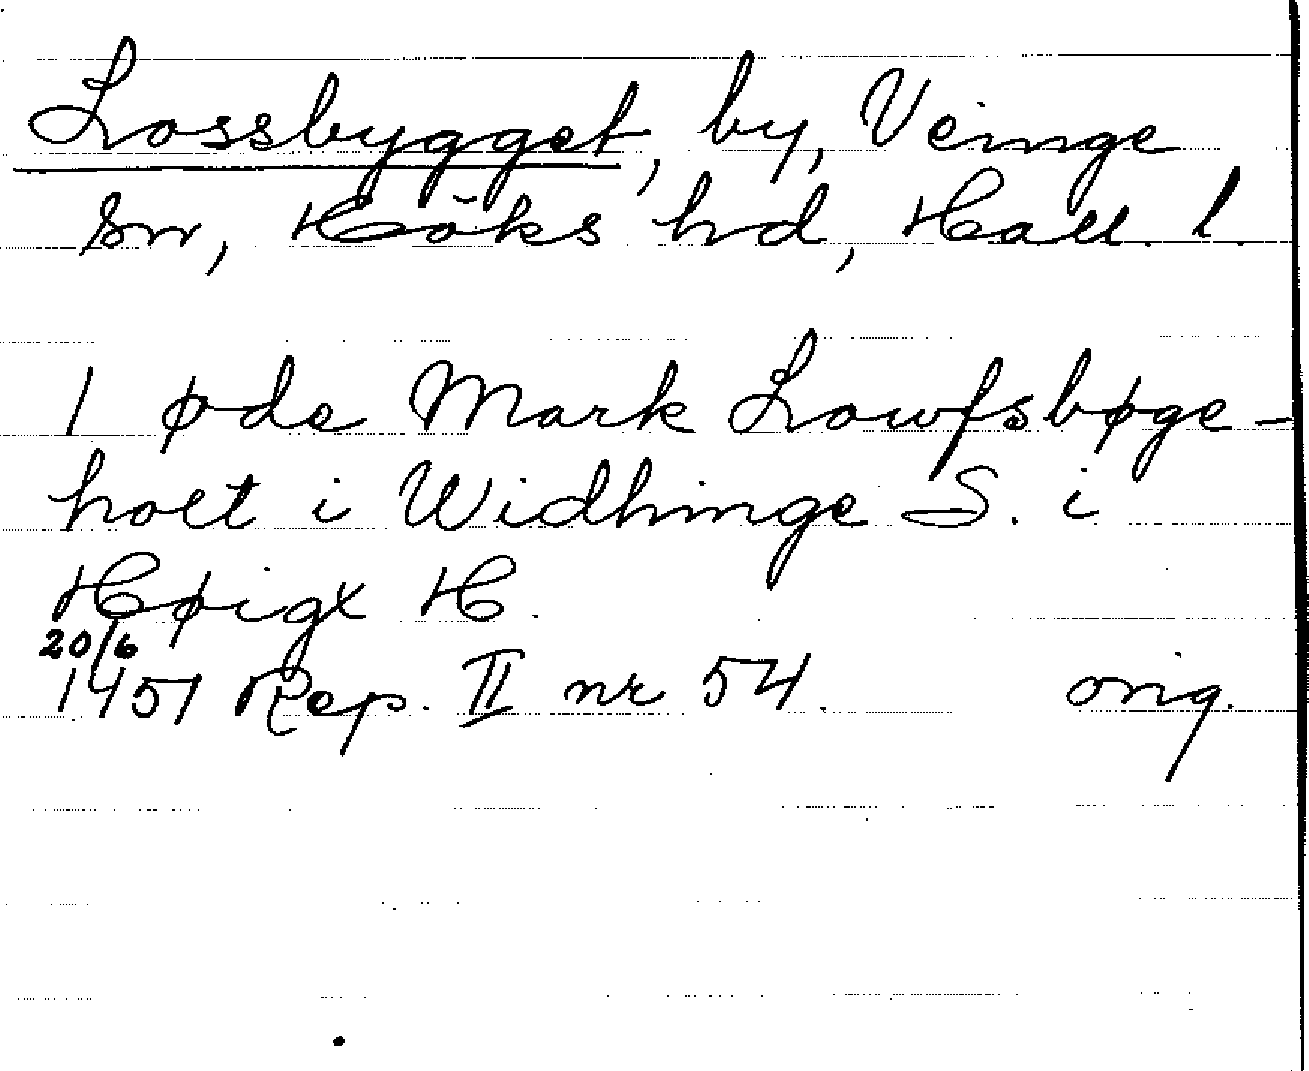 Lossbygget, by, Veinge
sn, Höks hd, Hall. l.
1 øde Mark Lowfsbøge-
holt i Widhinge S. i
Høigx H.
20/6
1451 Rep. II nr 54. orig.